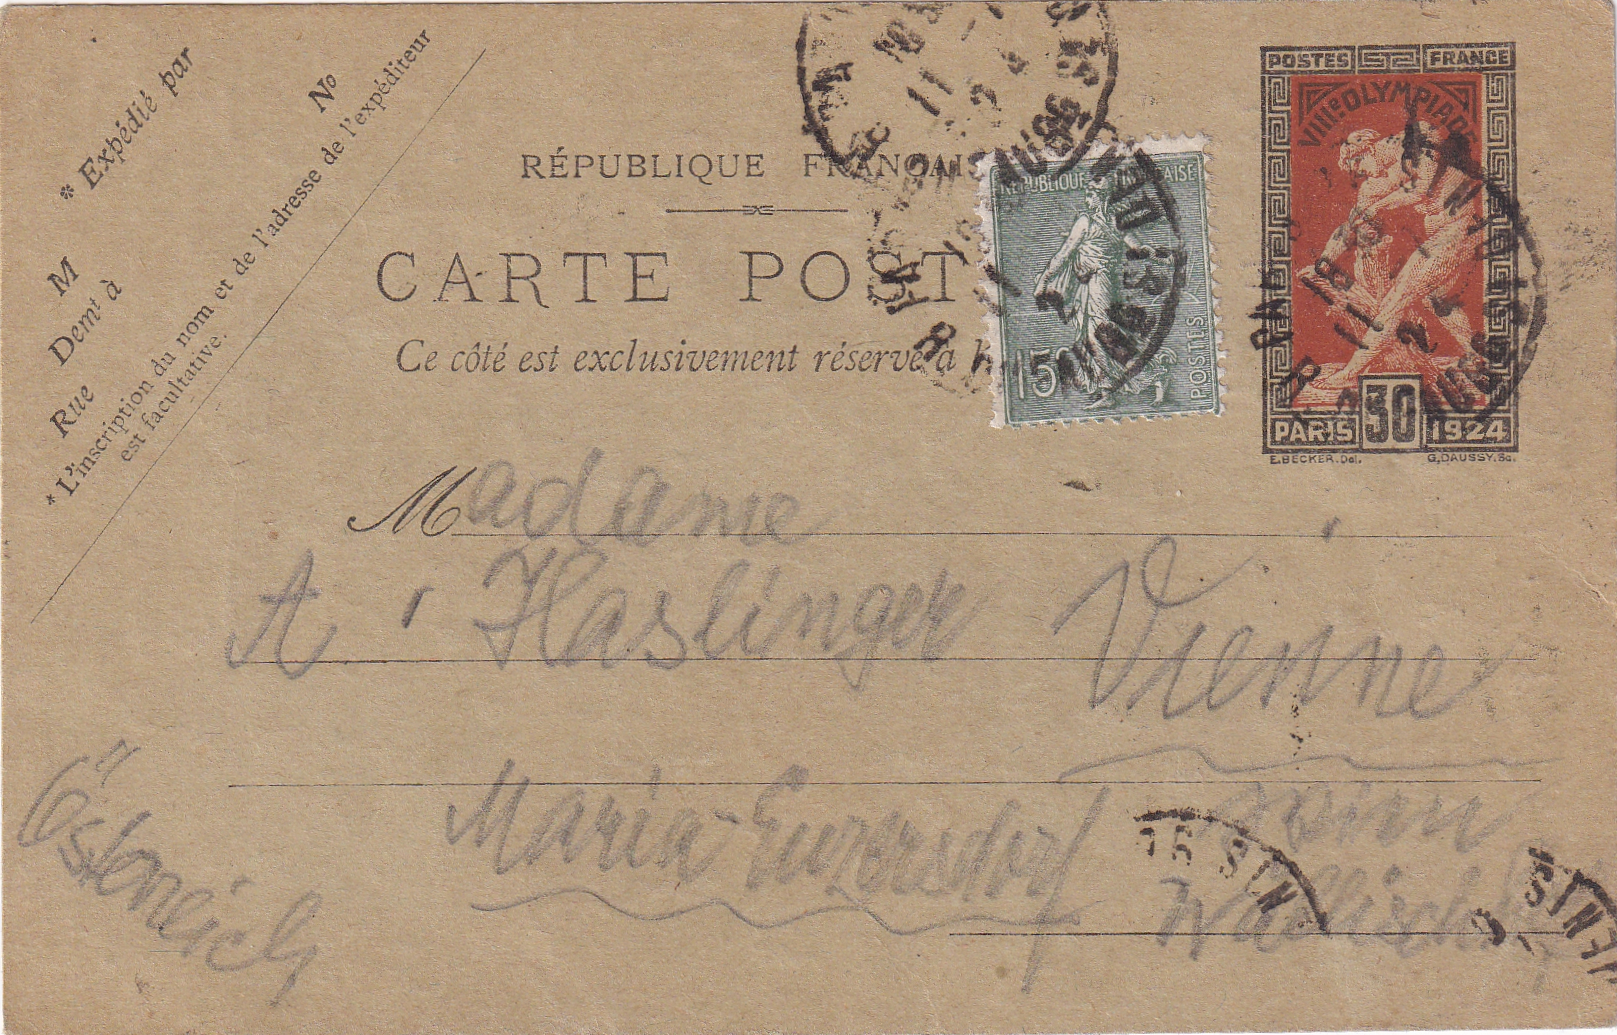 * Expédié par
No
M
Demt à
Rue
* L'inscription du nom et de l'adresse de l'expéditeur
est facultative.
RÉPUBLIQUE FRANÇAIS
CARTE POST
Ce côté est exclusivement réservé à
RÉPUBLIQUE FRANÇAISE
15c
POSTES
POSTES FRANCE
VIIIe OLYMPIADE
PARIS 30 1924
E.BECKER.Del. G.DAUSSY.Sc.
Madame
A Haslinger Vienne
Maria-Enzersdorf
Östereich